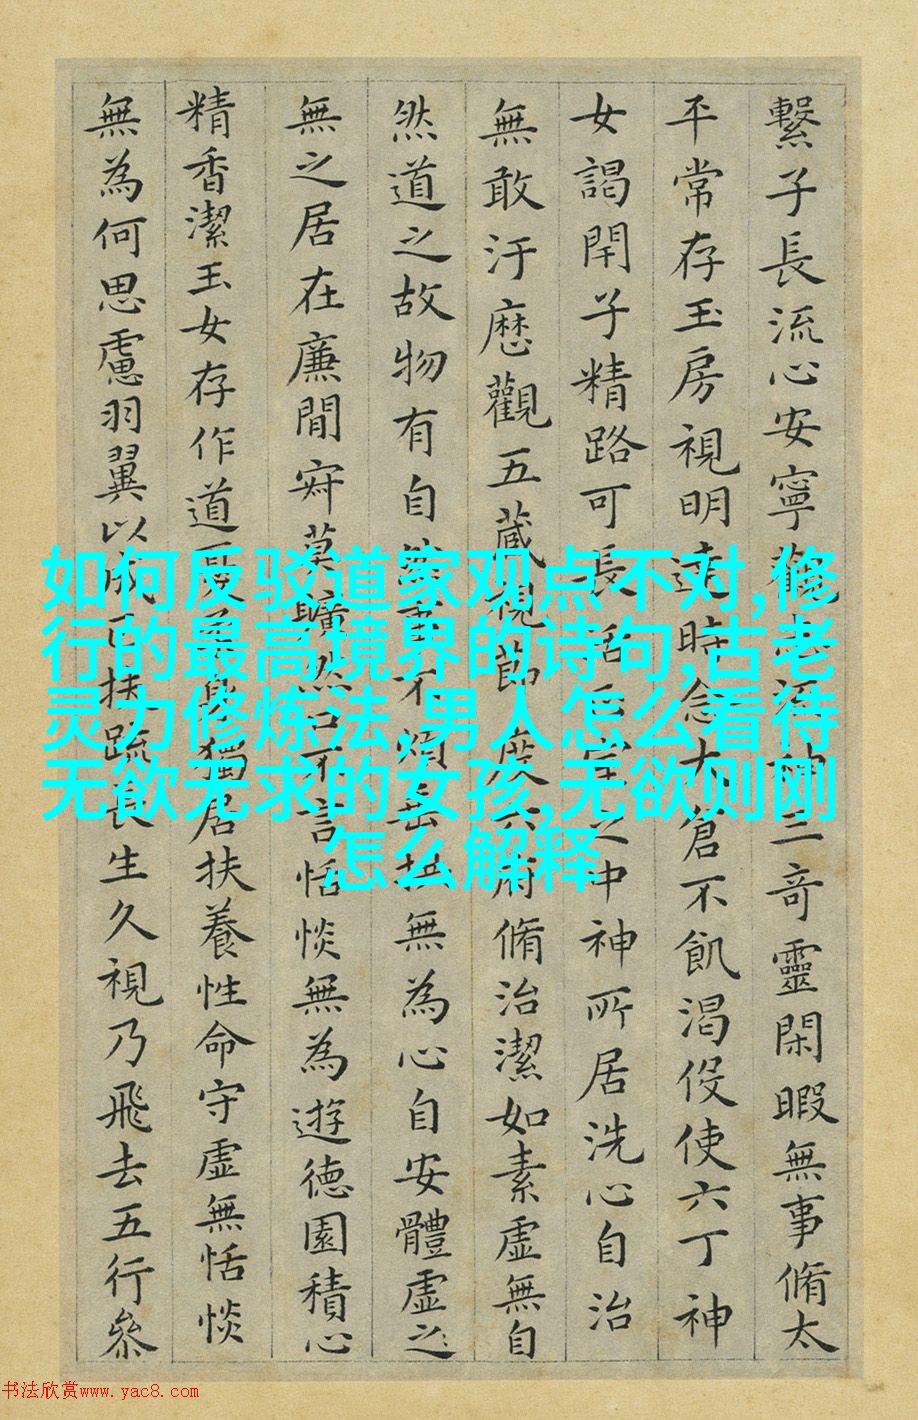 繫子長流心安寧觀志流神三奇靈閑暇無事脩太
平常存玉房視明達時念大倉不飢渴役使六丁神
女謁閇子精路可長活正室之中神所居洗心自治
無敢汙歷觀五藏視節度六府脩治潔如素虛無自
然道之故物有自然事不煩垂拱無為心自安體虛之
無之居在廉間寂莫曠然口不言恬惔無為遊德園積心
精香潔玉女存作道憂柔身獨居扶養性命守虛無恬惔
無為何思慮羽翼以成正扶疏長生久視乃飛去五行參
如何反驳道家观点不对,修
行的最高境界的诗句,古老
灵力修炼法,男人怎么看待
无欲无求的女孩,无欲则刚
怎么解释
书法欣赏www.yac8.com